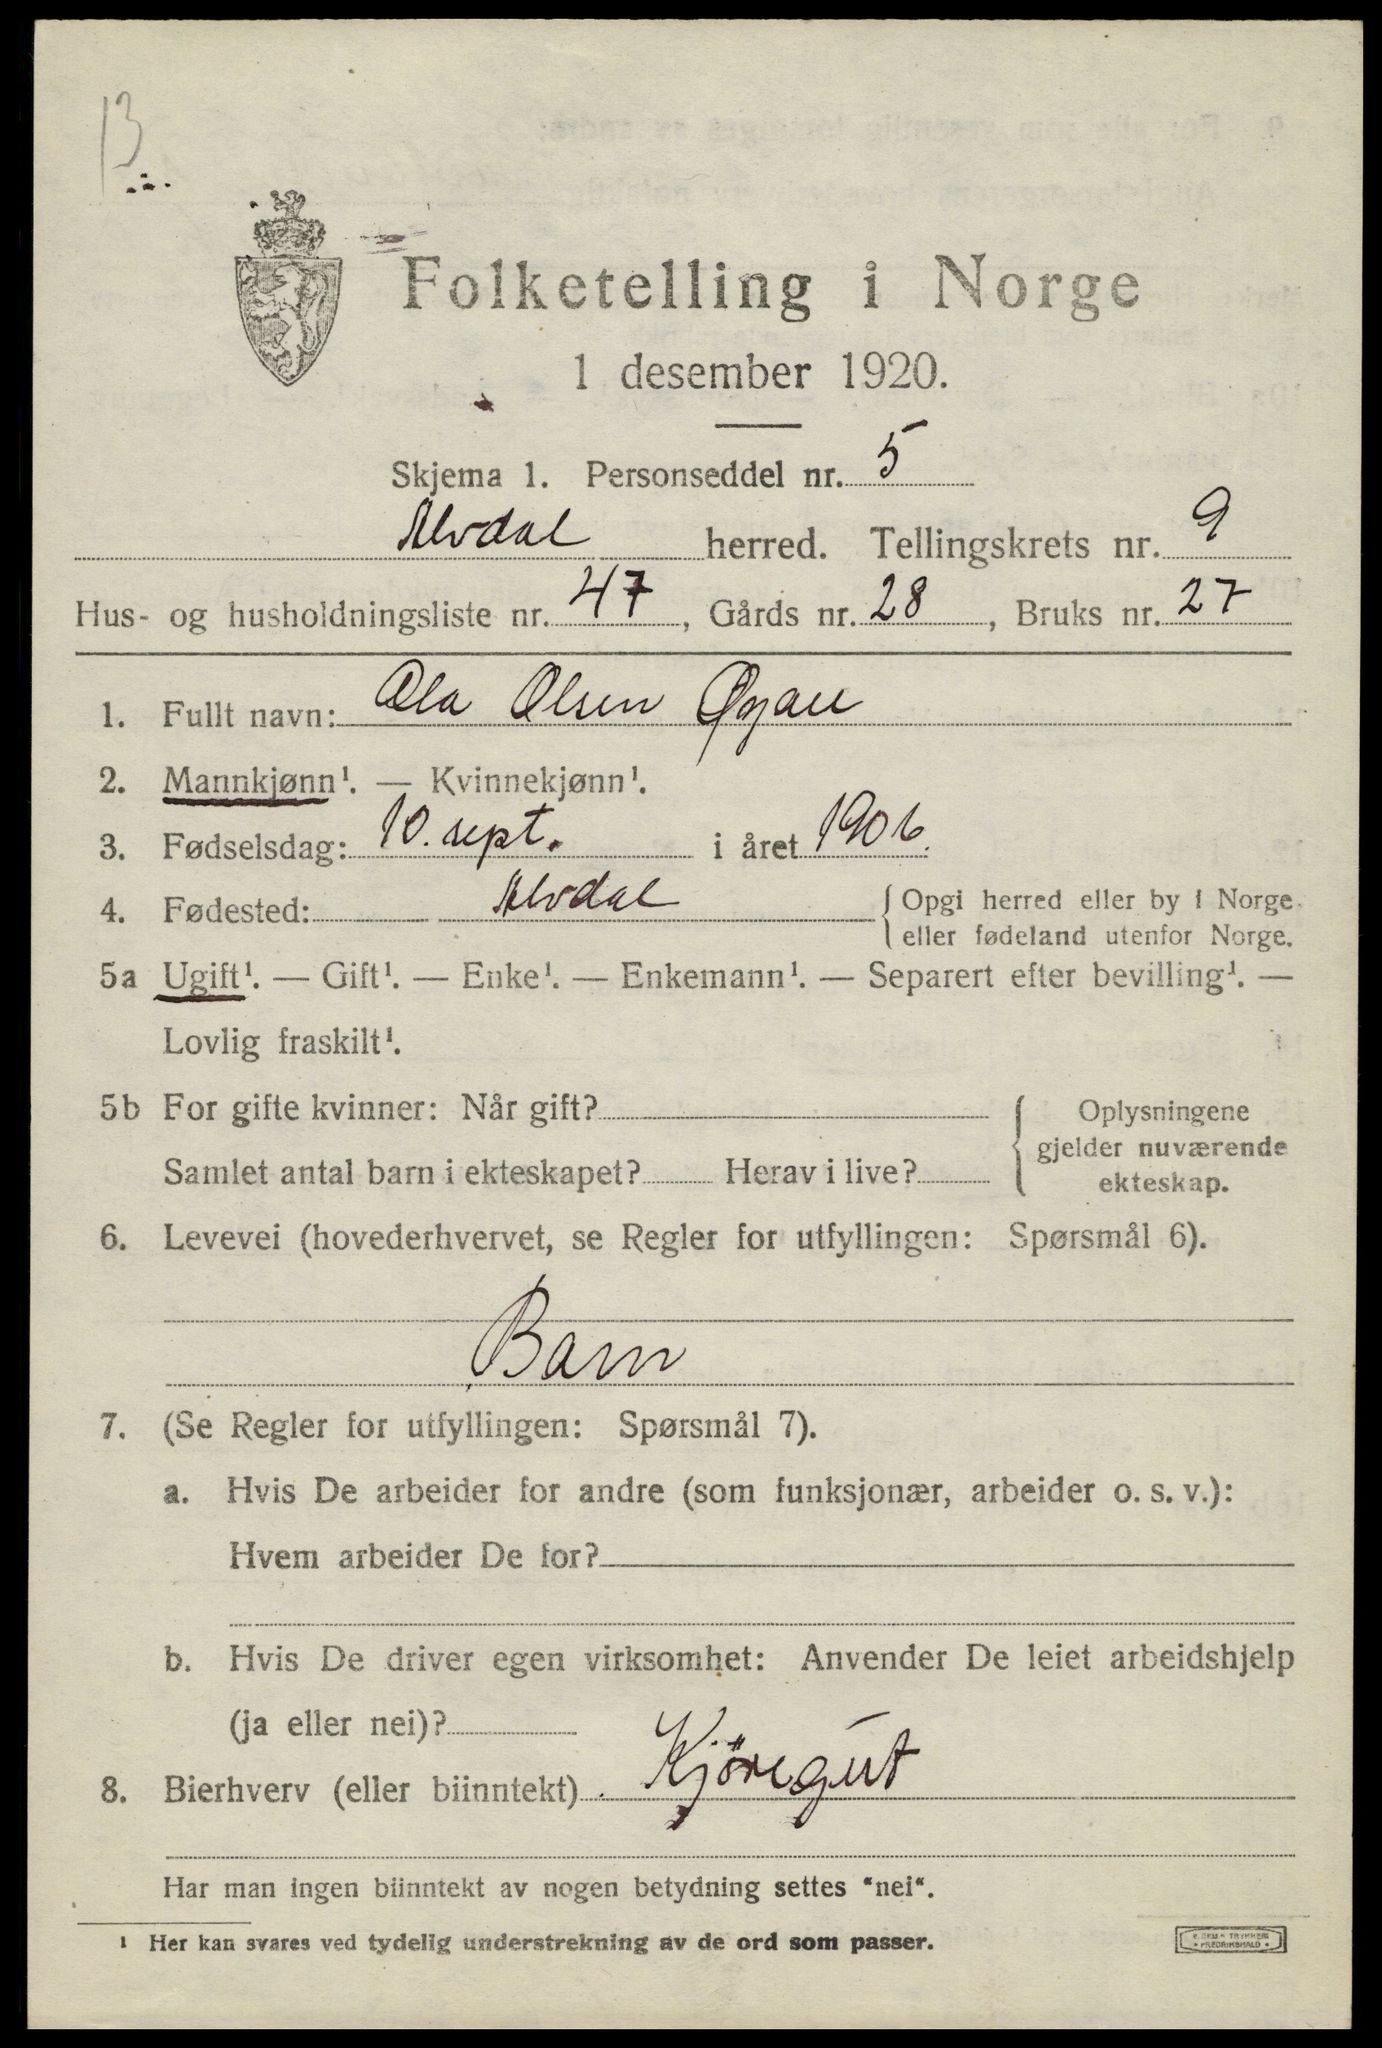 13
Folketelling i Norge
1 desember 1920.
Skjema 1. Personseddel nr. 5
Alvdal herred. Tellingskrets nr. 9
Hus- og husholdningsliste nr. 47, Gårds nr. 28, Bruks nr. 27
1. Fullt navn: Ola Olsen
2. Mannkjønn¹. — Kvinnekjønn¹.
3. Fødselsdag: 10. sept. i året 1906.
4. Fødested: Alvdal {Opgi herred eller by i Norge
eller fødeland utenfor Norge.
5a Ugift¹. — Gift¹. — Enke¹. — Enkemann¹. — Separert efter bevilling¹. —
Lovlig fraskilt¹.
5b For gifte kvinner: Når gift? Oplysningene
gjelder nuværende
Samlet antal barn i ekteskapet? Herav i live? ekteskap.
6. Levevei (hovederhvervet, se Regler for utfyllingen: Spørsmål 6).
Barn
7. (Se Regler for utfyllingen: Spørsmål 7).
a. Hvis De arbeider for andre (som funksjonær, arbeider o. s. v.):
Hvem arbeider De for?
b. Hvis De driver egen virksomhet: Anvender De leiet arbeidshjelp
(ja eller nei)?
8. Bierhverv (eller biinntekt) Kjöregut
Har man ingen biinntekt av nogen betydning settes "nei".
¹ Her kan svares ved tydelig understrekning av de ord som passer.